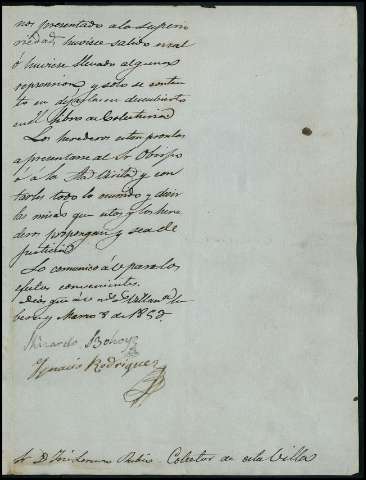 nos presentado a la Superio
ridad, huviese salido mal
ó huviese llevado alguna
reprension, y solo se conten
tó en dejarlas en descubierto
en el Libro de Colecturia
Los herederos estan prontos
a presentarse al Sr Obispo
ó á la Sta Visita y con
tarles todo lo mundo y decir
las misas que estos y los here
deros propongan y sea de
justicia
Lo comunico á Ve para los
efectos convenientes.
Dios gue á Ve ms as
bera y Marzo 8 de 1857.
Ignacio Rodriguez
Sr. D. José Lorenzo Rubio. Colector de esta Villa